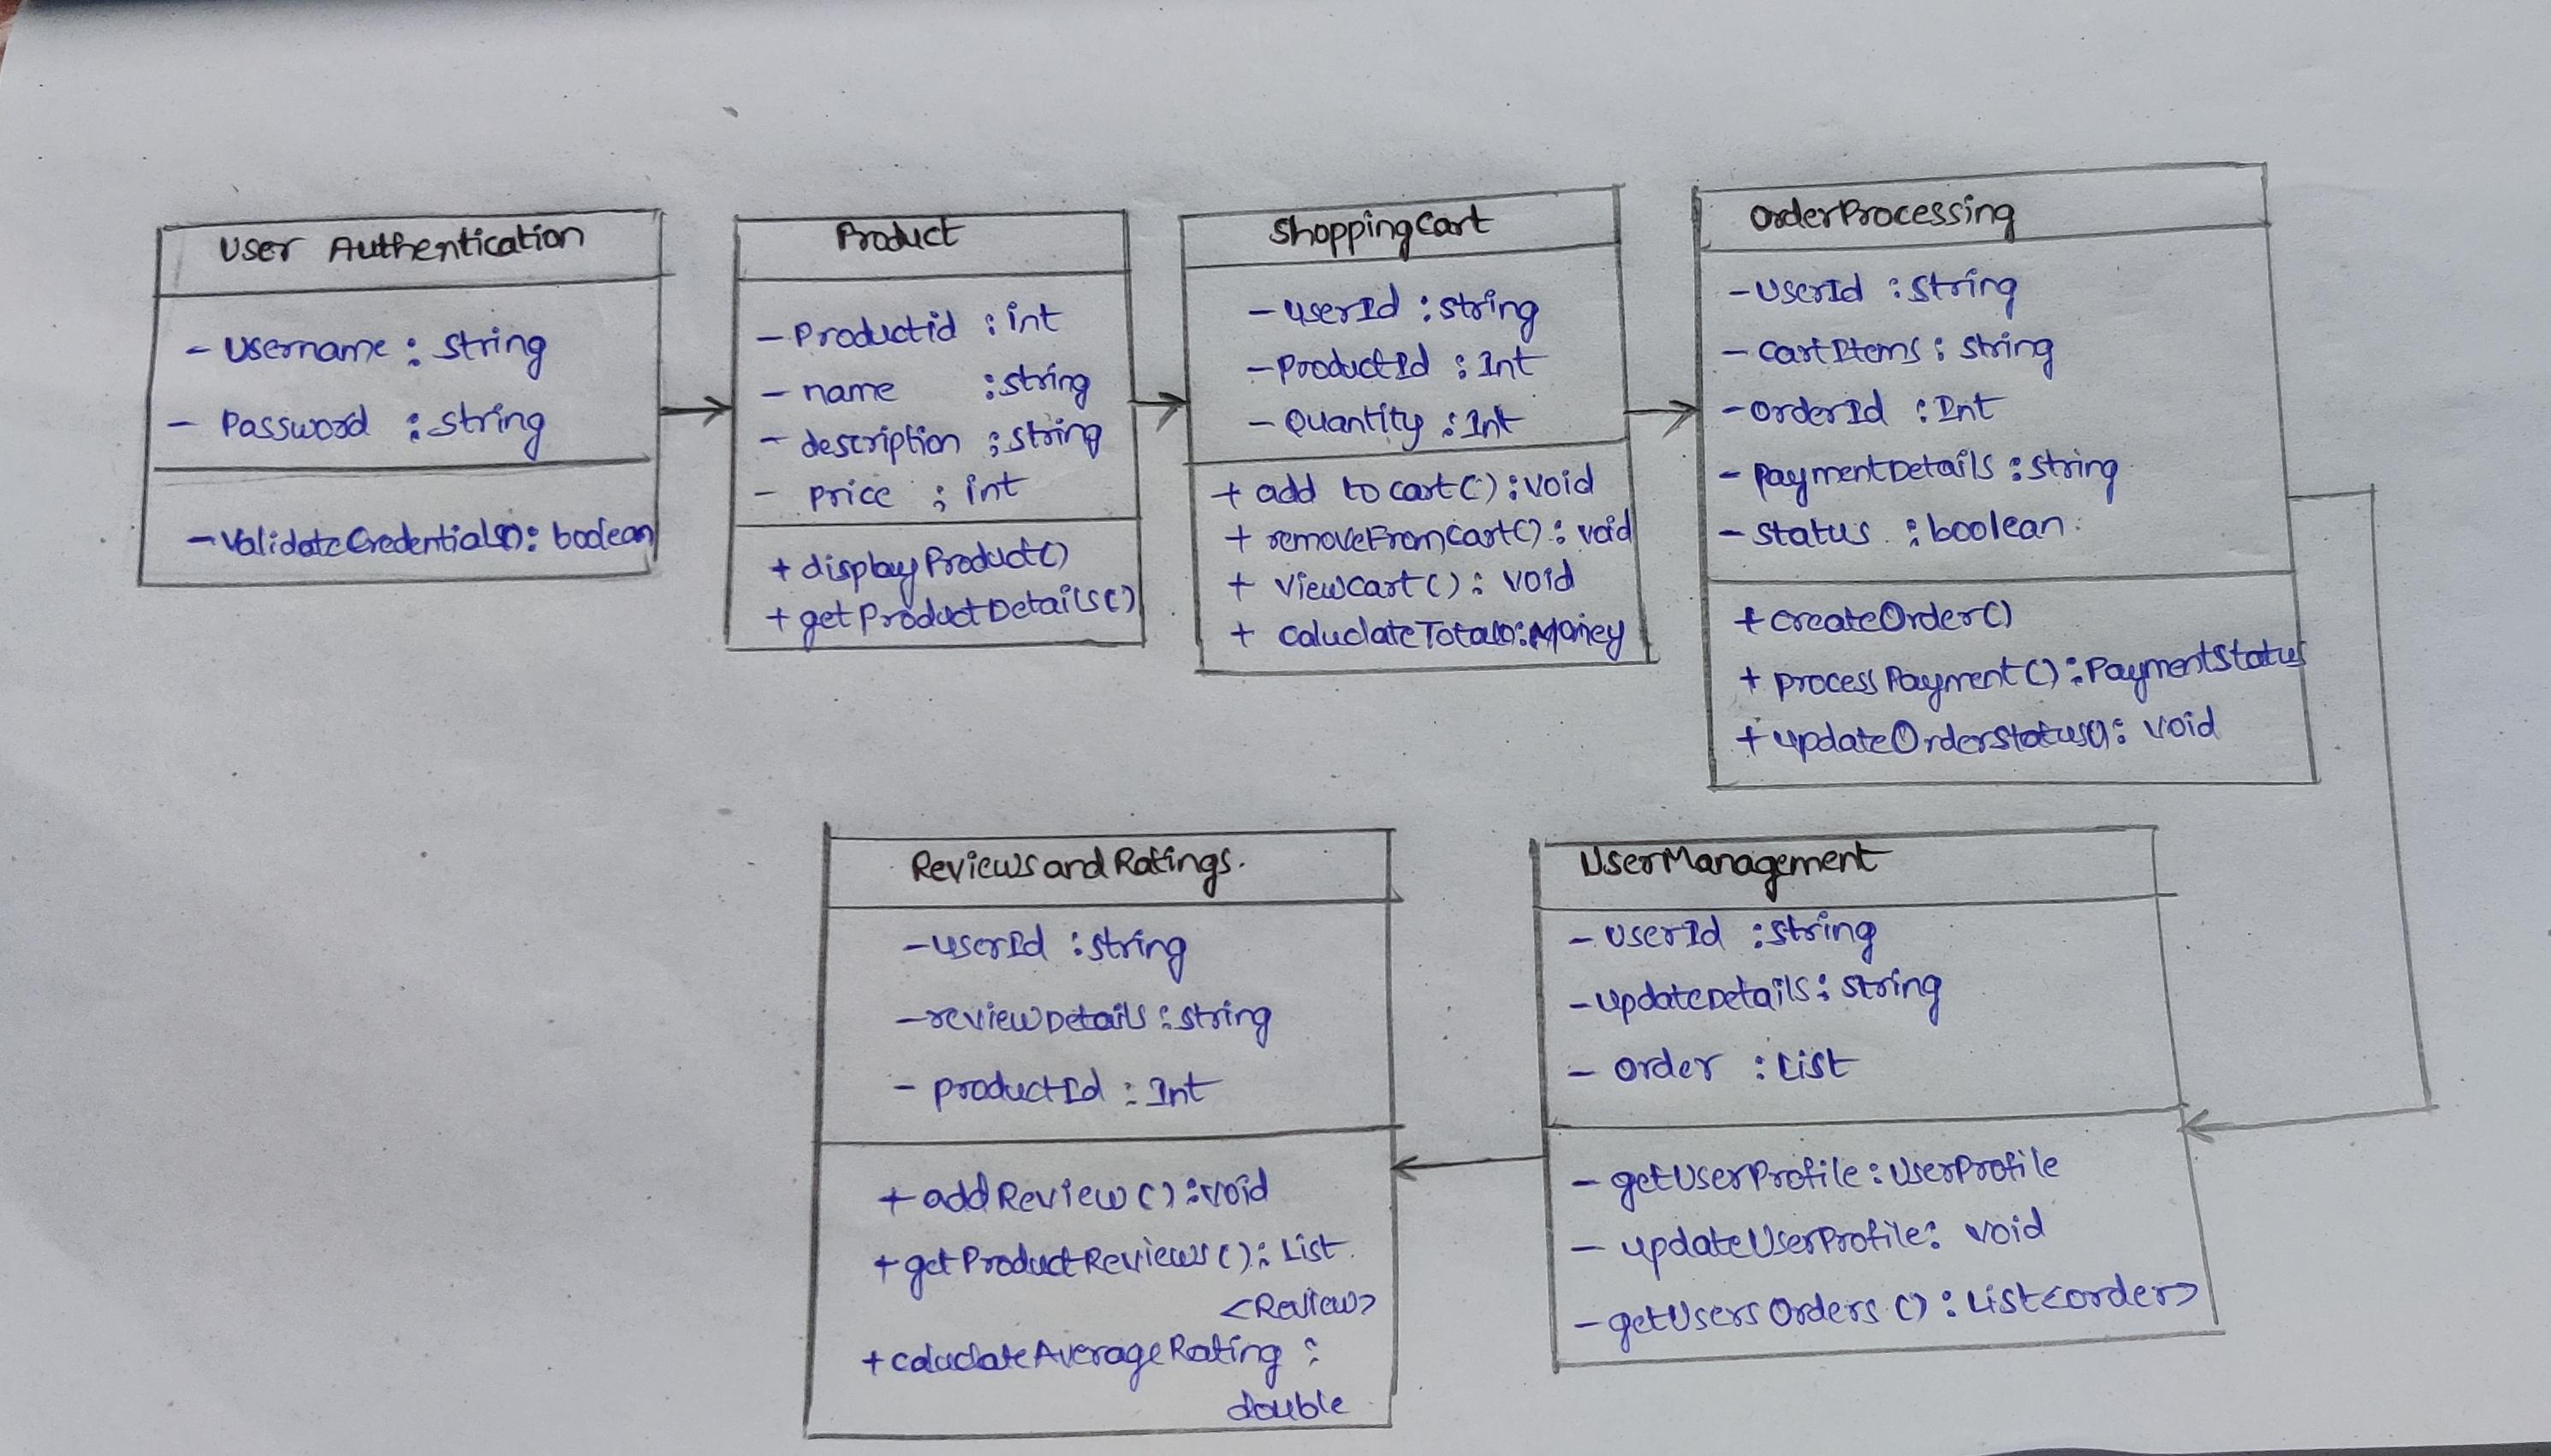 User Authentication
- Username : String
- Password : String
- ValidateCredentials() : boolean
Product
- Productid : int
- name : string
- description : string
- price : int
+ displayProduct()
+ getProductDetails()
ShoppingCart
- userId : string
- ProductId : Int
- Quantity : Int
+ add to cart() : void
+ removeFromCart() : void
+ viewcart() : void
+ caluclateTotal() : Money
OrderProcessing
- UserId : String
- CartItems : String
- OrderId : Int
- PaymentDetails : String
- Status : boolean.
+ createOrder()
+ processPayment() : PaymentStatus
+ updateOrderStatus() : void
ReviewsandRatings.
- userId : string
- reviewDetails : String
- productId : Int
+ addReview() : void
+ getProductReviews() : List
<Review>
+ caluclateAverageRating :
double
UserManagement
- userId : string
- updateDetails : String
- order : List
- getUserProfile : UserProfile
- updateUserProfile : void
- getUsersOrders() : List<order>